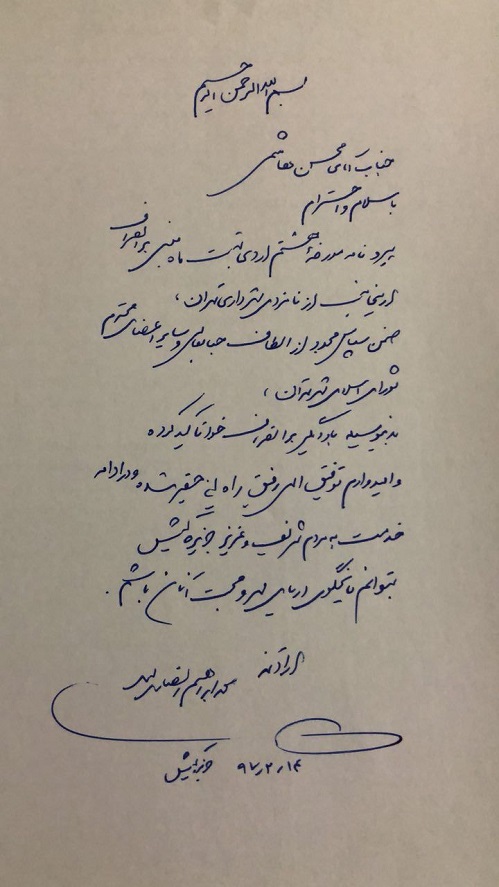 بسم الله الرحمن الرحیم
جناب آقای محسن هاشمی
با سلام و احترام
پیرو نامه مورخه هشتم اردیبهشت ماه مبنی بر انصراف
اینجانب از نامزدی شهرداری تهران،
ضمن سپاس مجدد از الطاف جنابعالی و سایر اعضای محترم
شورای اسلامی شهر تهران،
بدینوسیله بار دیگر بر انصراف خود تاکید کرده
و امیدوارم توفیق الهی رفیق راه این حقیر شده و در ادامه
خدمت به مردم شریف و عزیز جزیره کیش
بتوانم پاسخگوی دریای مهر و محبت آنان باشم.
ارادتمند
محمد ابراهیم انصاری لاری
۹۷٫۲٫۱۴ جزیره کیش